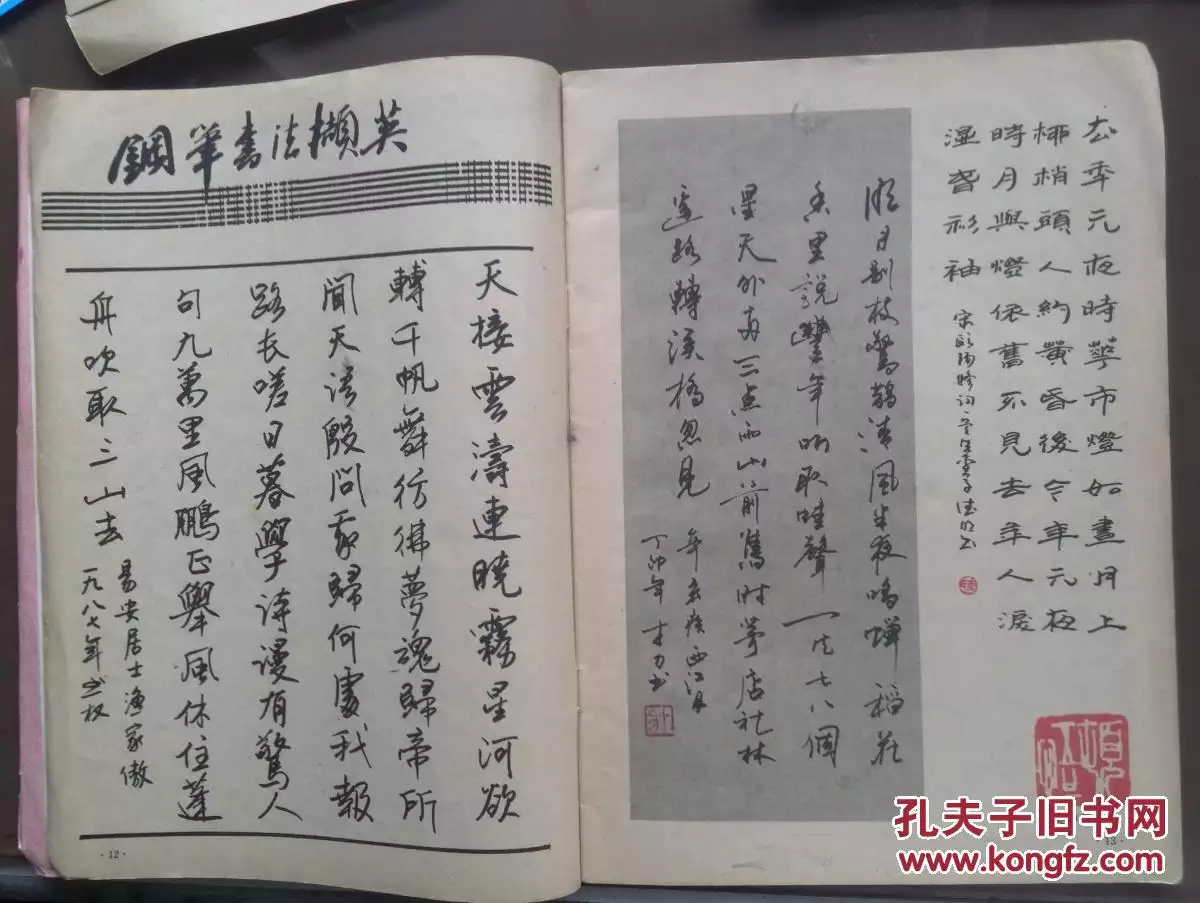 鋼筆書法擷英
天接雲濤連曉霧星河欲
轉千帆舞彷彿夢魂歸帝所
聞天語殷問我歸何處我報
路长嗟日暮學诗漫有驚人
句九萬里風鵬正舉風休住蓬
舟吹取三山去
易安居士漁家傲
一九八七年
·12·
去年元夜時花市燈如晝月上
柳梢頭人約黄昏後今年元夜
時月與燈依舊不見去年人淚
湿春衫袖
宋歐陽修词
明月别枝驚鵲清風半夜鳴蟬稻花
香里説豐年听取蛙聲一片七八個
星天外两三点雨山前舊时茅店社林
边路轉溪橋忽見
辛弃疾西江月
丁卯年
·13·
孔夫子旧书网
www.kongfz.com